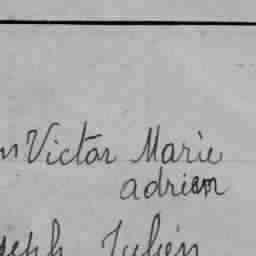 n Victor Marie
adrien
seph Julien